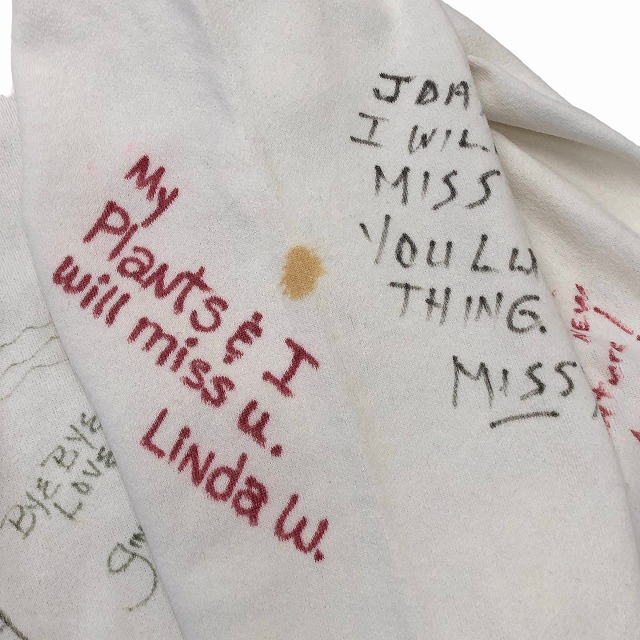 My
Plants & I
will miss u.
Linda W.
JDA
I WIL
MISS
YOU LU
THING.
MISS
Bye Bye
Love